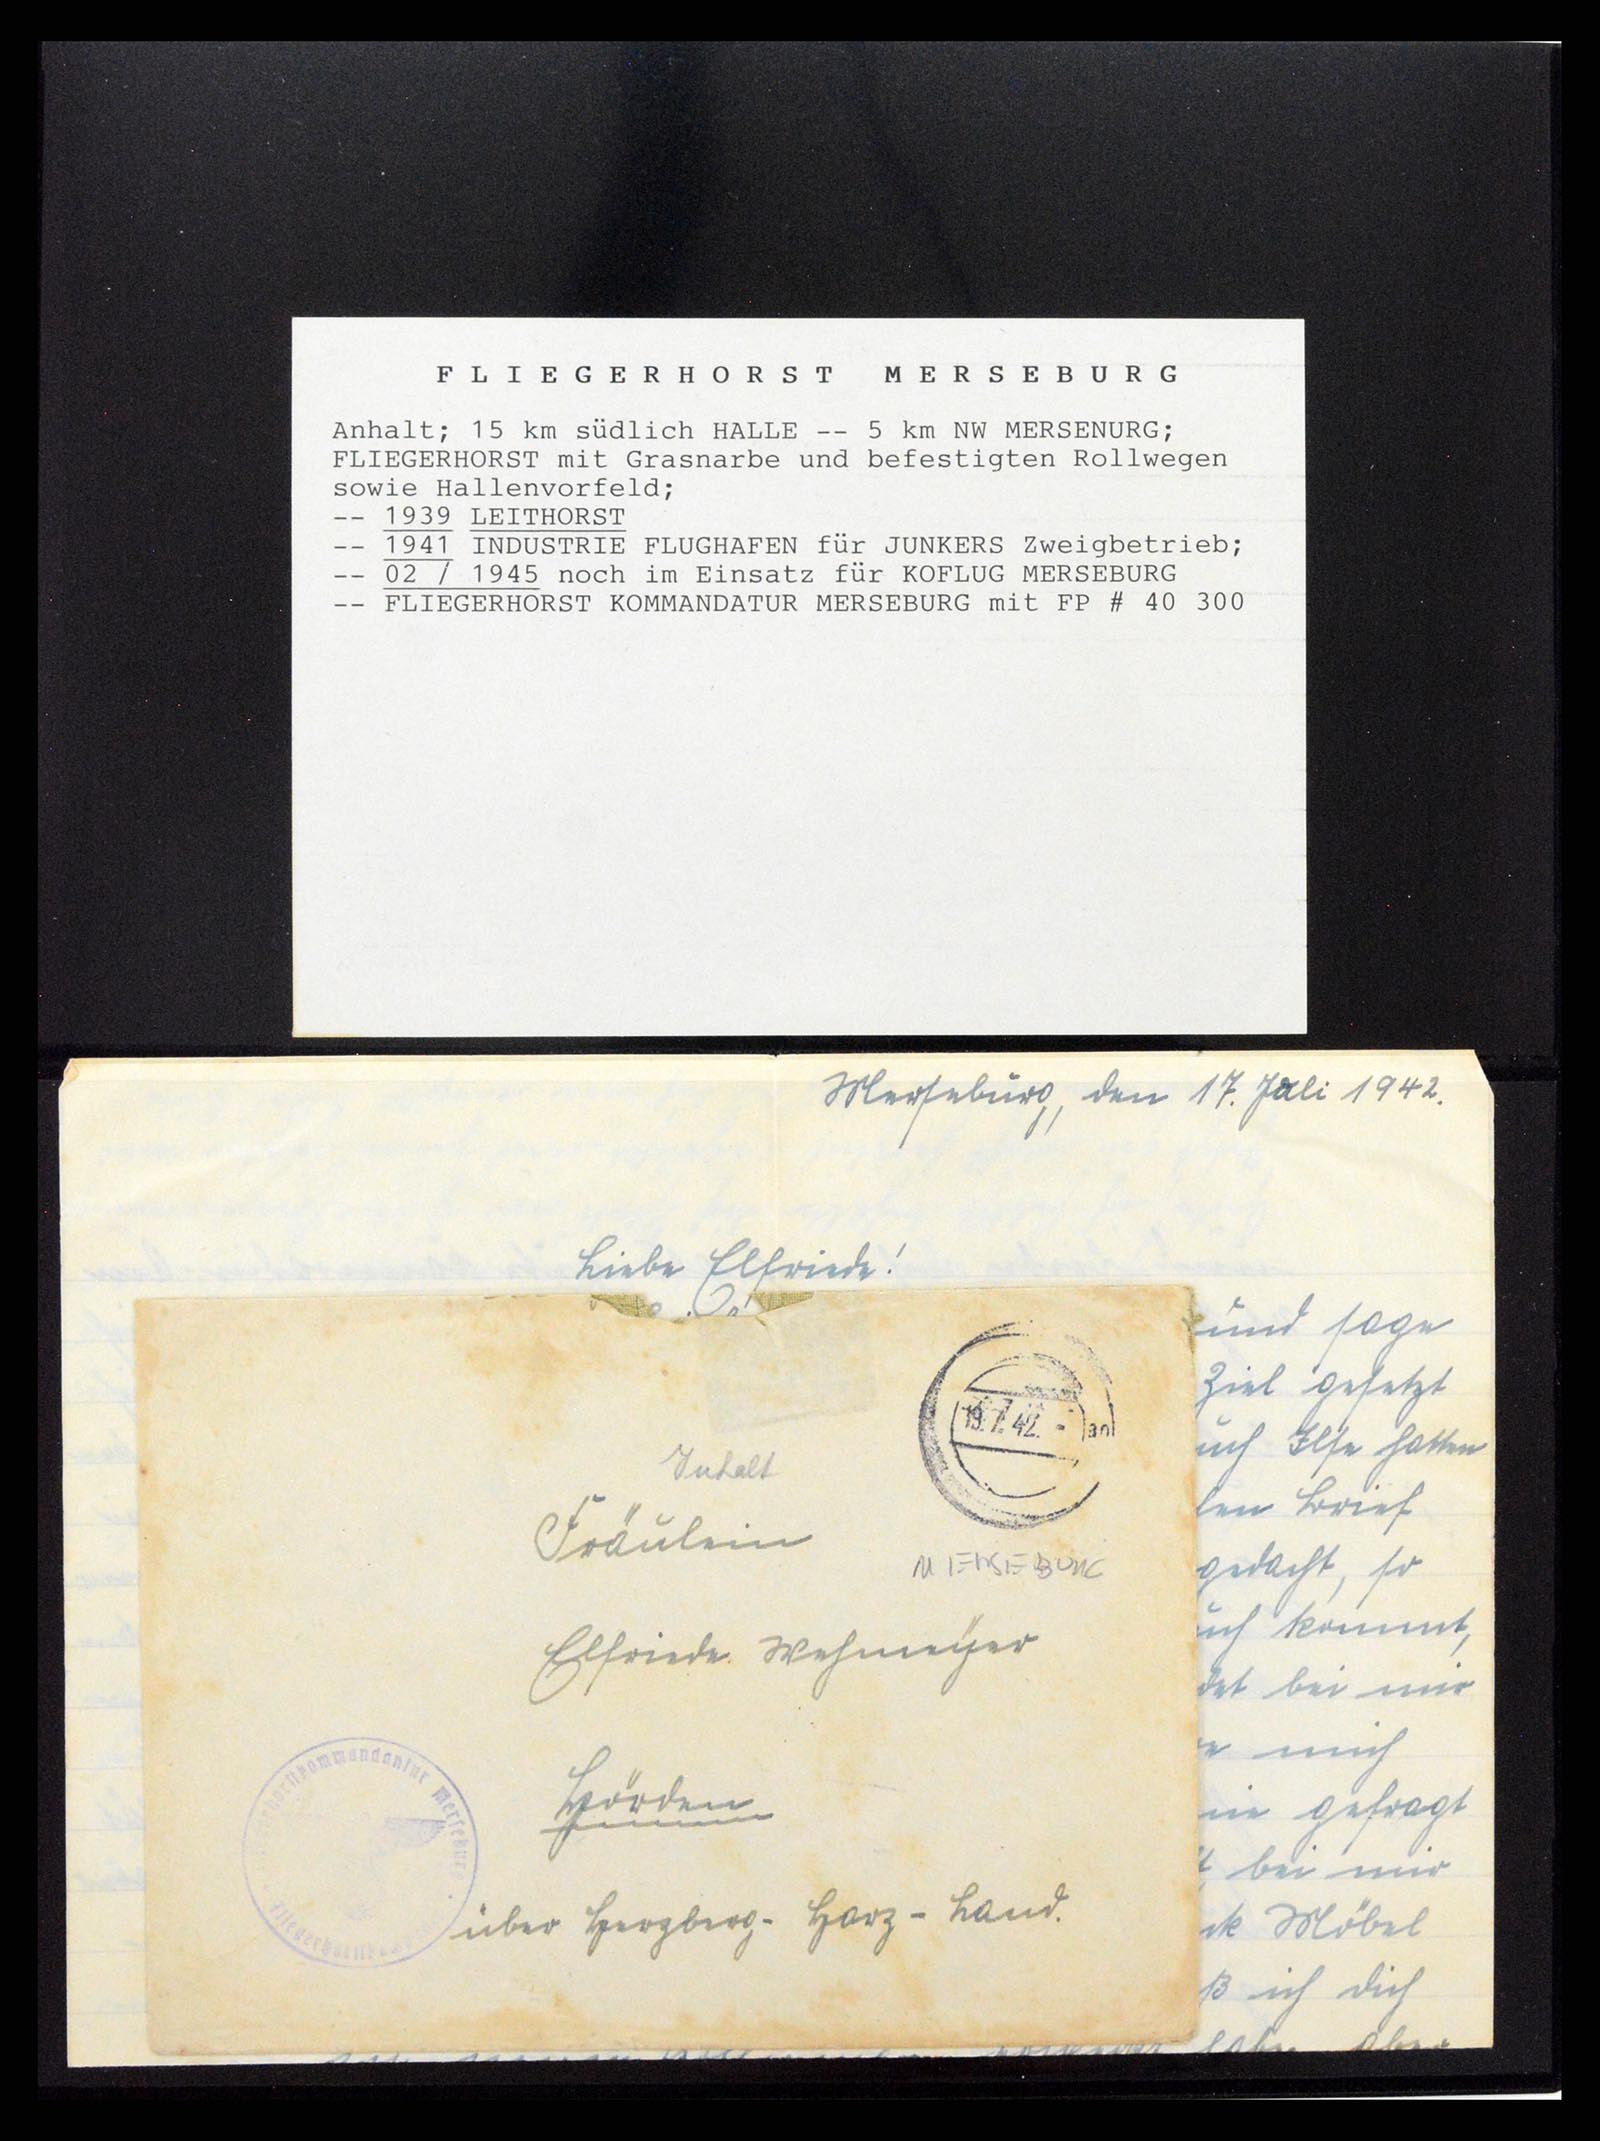 FLIEGERHORST MERSEBURG
Anhalt; 15 km südlich HALLE -- 5 km NW MERSENURG;
FLIEGERHORST mit Grasnarbe und befestigten Rollwegen
sowie Hallenvorfeld;
-- 1939 LEITHORST
-- 1941 INDUSTRIE FLUGHAFEN für JUNKERS Zweigbetrieb;
-- 02 / 1945 noch im Einsatz für KOFLUG MERSEBURG
-- FLIEGERHORST KOMMANDATUR MERSEBURG mit FP # 40 300
Merseburg, den 17. Juli 1942.
Liebe Elfriede!
und sage
Ziel gesetzt
uch Ilse hatten
len Brief
gedacht, so
uch kommt,
det bei mir
mich
nie gefragt
bei mir
ck Möbel
ß ich dich
habe, aber
19.7.42. -
Inhalt
Fräulein
MERSEBURG
Elfriede Wehmeÿer
Hörden
über Herzberg- Harz - Land.
horstkommandantur Merseburg